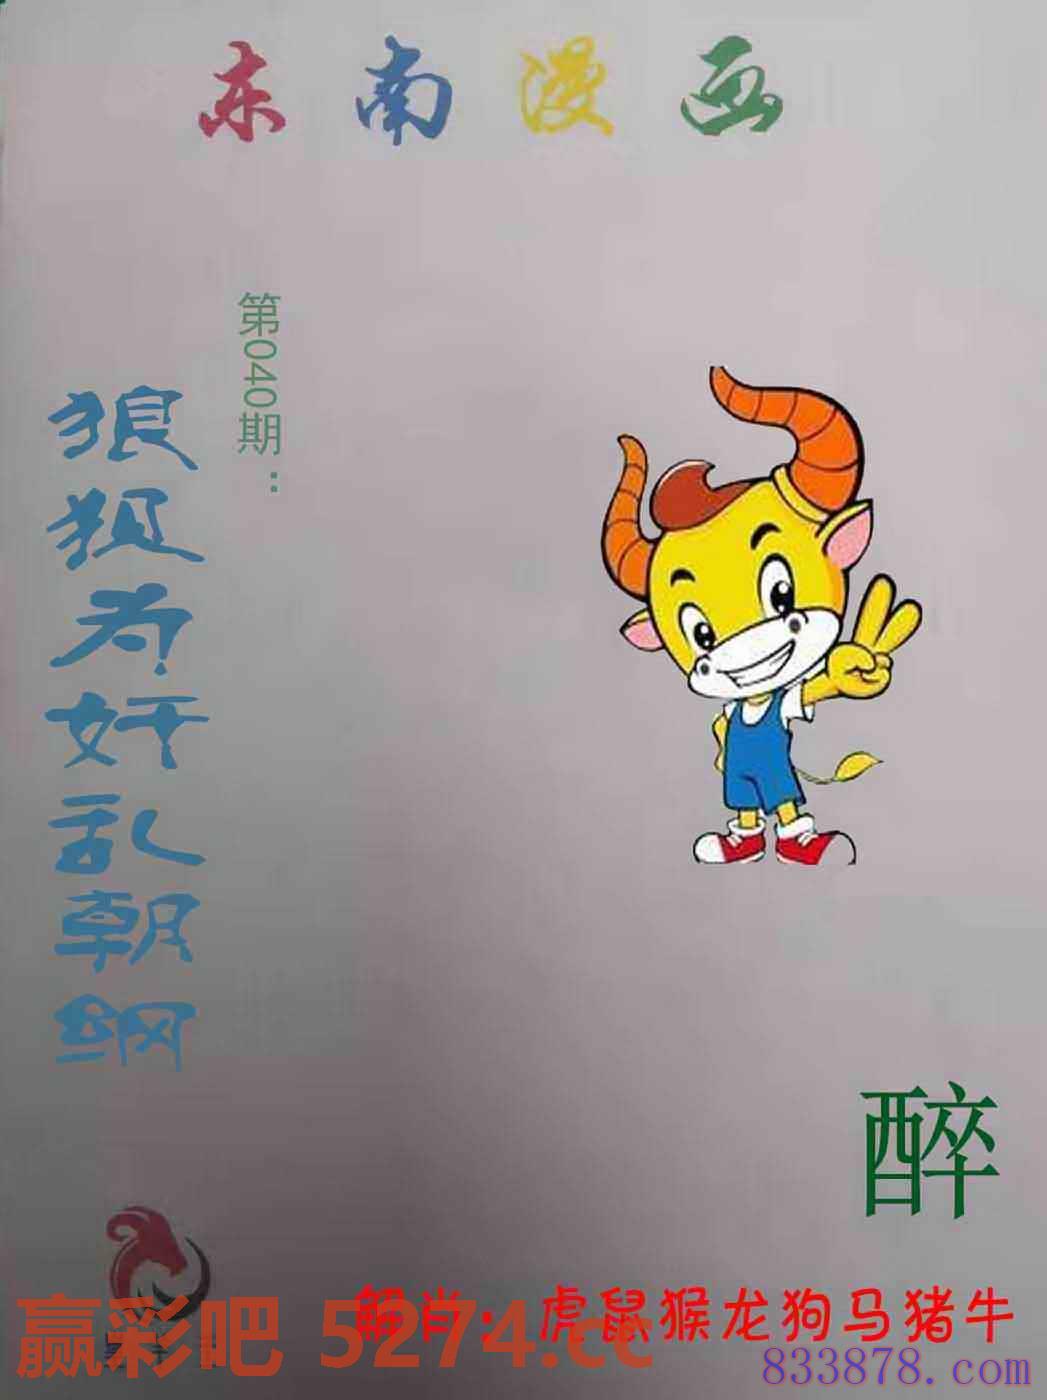 东南漫画
第040期：
狼狈为奸乱朝纲
醉
解肖：虎鼠猴龙狗马猪牛
赢彩吧 5274.cc
833878.com